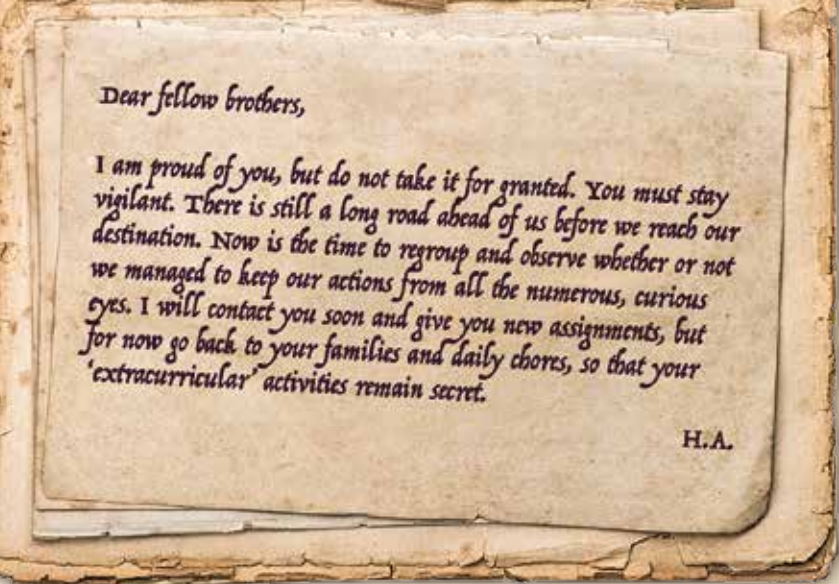 Dear fellow brothers,
I am proud of you, but do not take it for granted. You must stay
vigilant. There is still a long road ahead of us before we reach our
destination. Now is the time to regroup and observe whether or not
we managed to keep our actions from all the numerous, curious
eyes. I will contact you soon and give you new assignments, but
for now go back to your families and daily chores, so that your
‘extracurricular’ activities remain secret.
H.A.